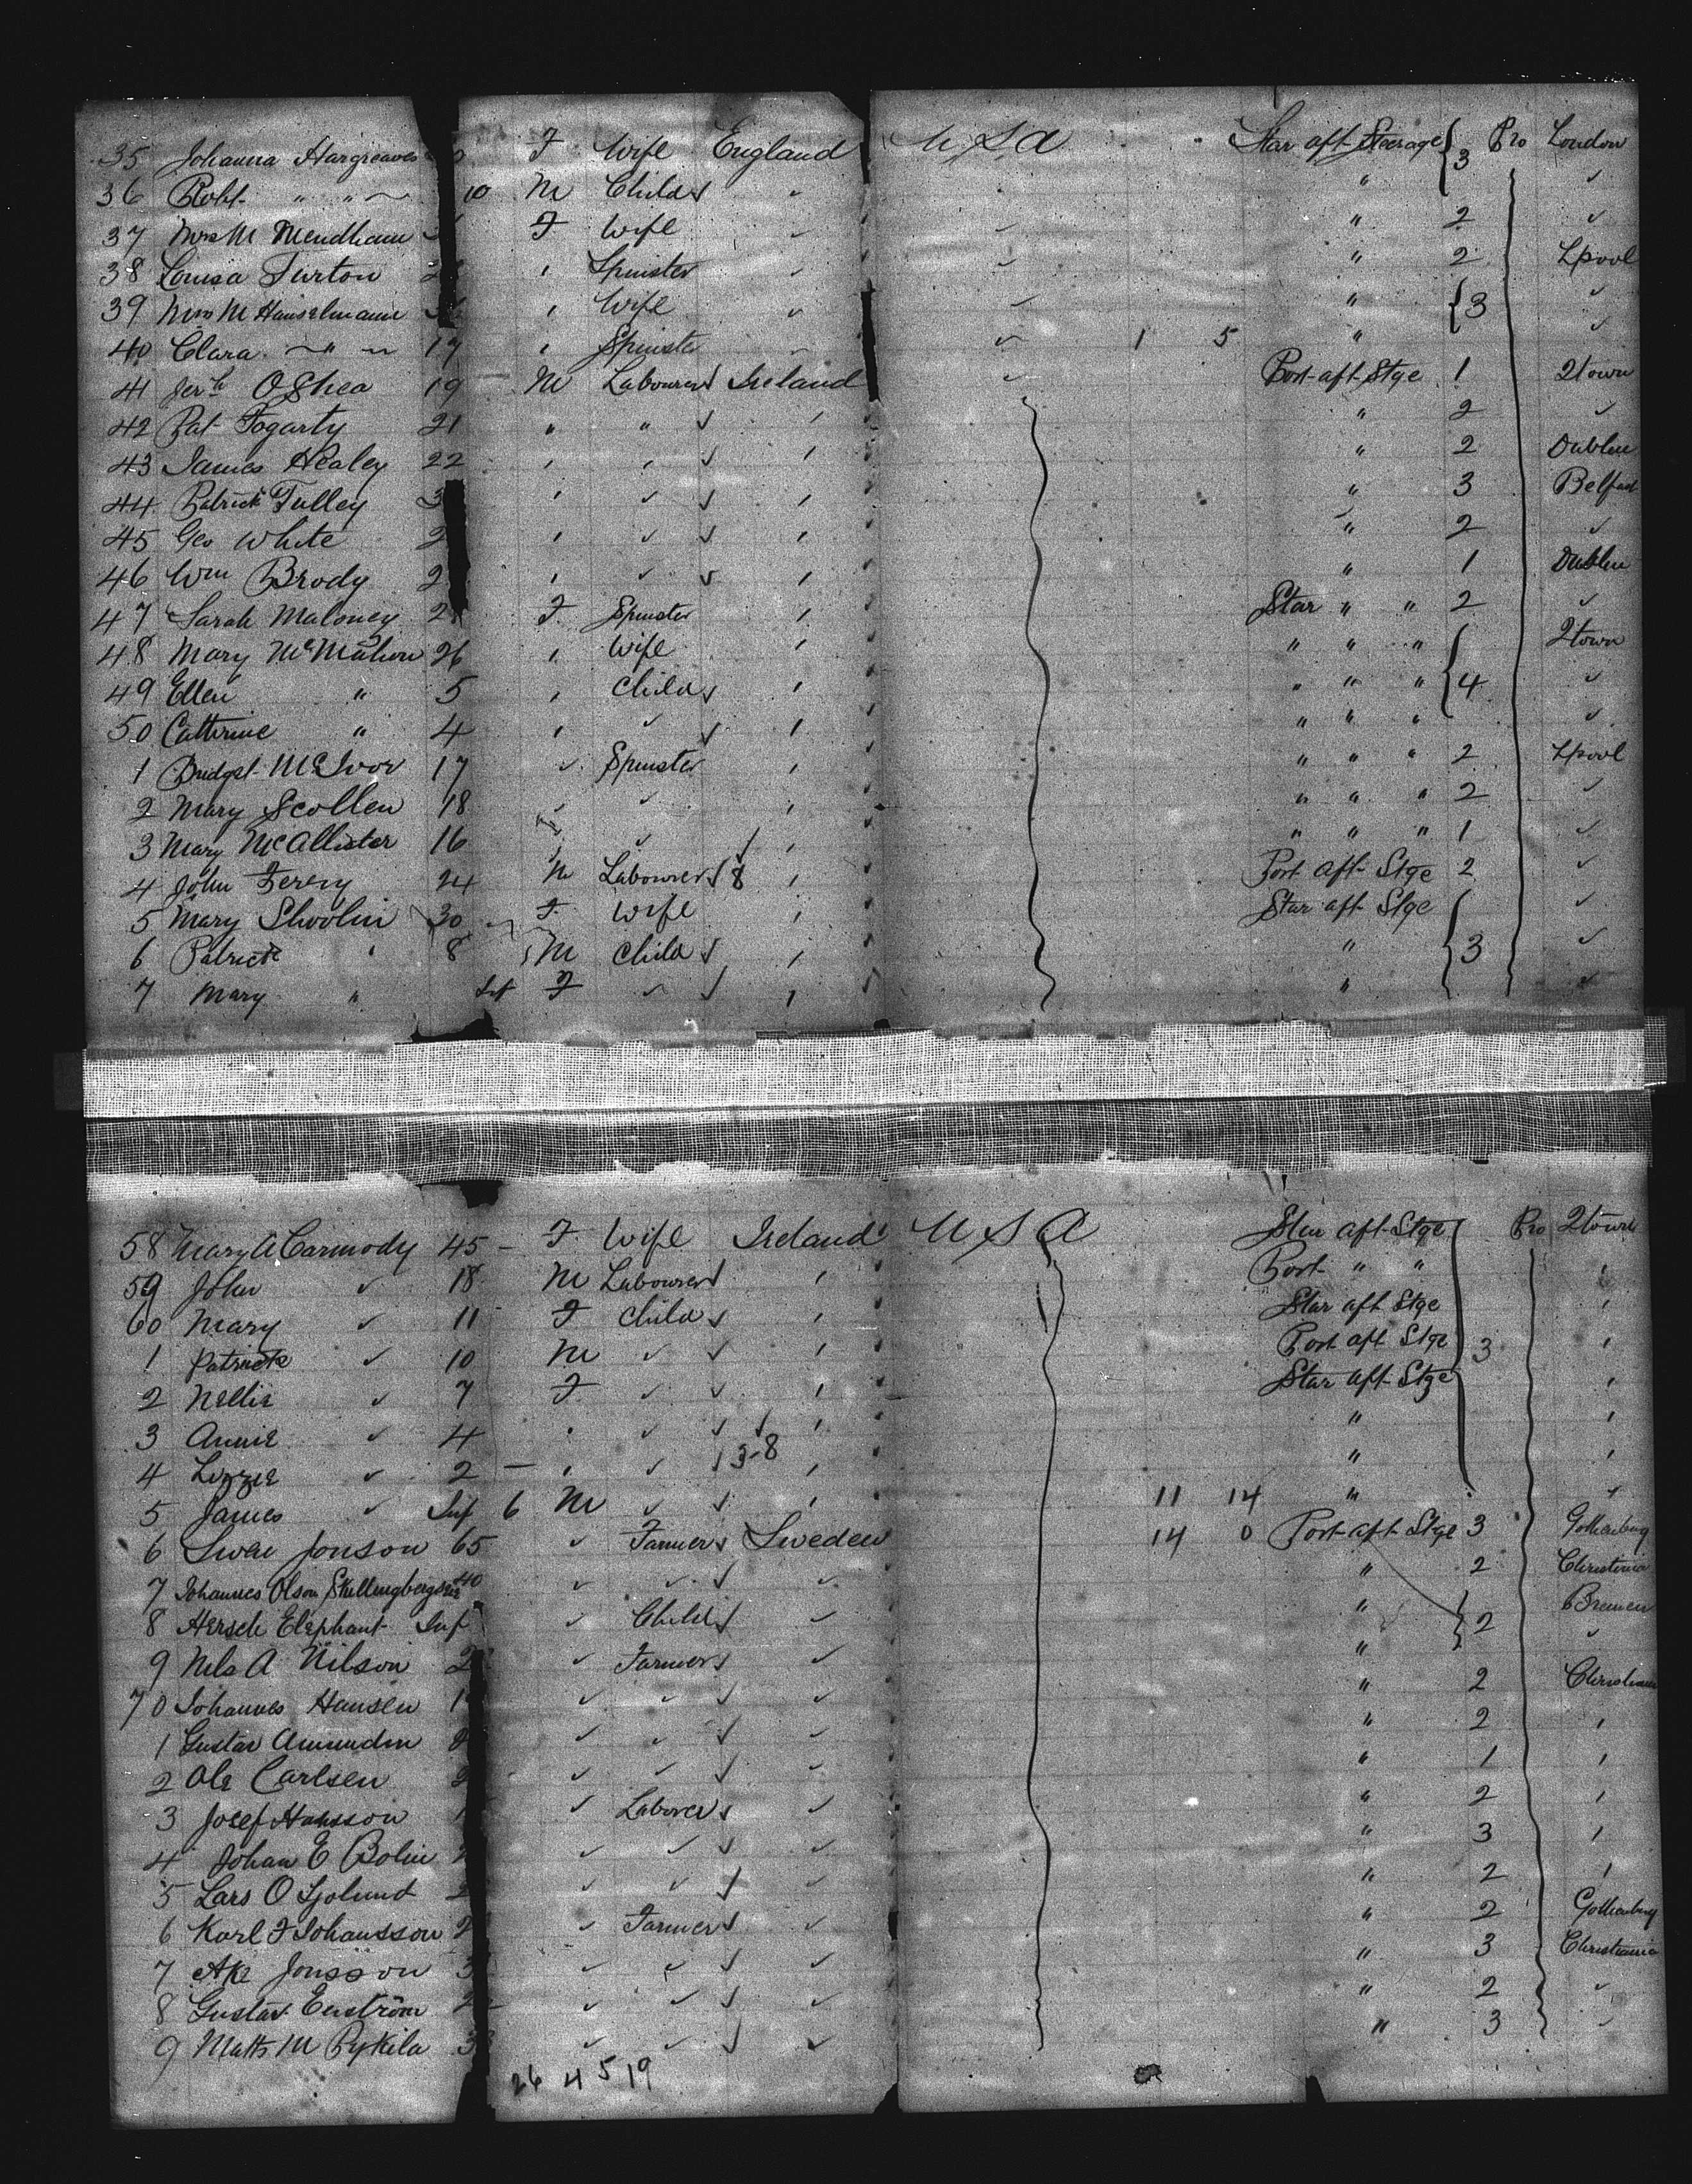 35 Johanna Hargreaves F Wife England U S A Star aft Steerage 3 Pro London
36 Robt " " 10 M Child ✓ " ✓
37 Mrs M Mendham F Wife ✓ ✓ " 2 ✓
38 Louisa Turton " Spinster ✓ ✓ " 2 Lpool
39 Mrs M Hanselmann " Wife ✓ ✓ " 3 ✓
40 Clara " 17 " Spinster ✓ ✓ 1 5 " ✓
41 Jerh O'Shea 19 M Labourer Ireland ✓ Port aft Stge 1 Qtown
42 Pat Fogarty 21 " " " " 2 ✓
43 James Healey 22 " " " " 2 Dublin
44 Patrick Tulley 3 " ✓ " " 3 Belfast
45 Geo White 2 " ✓ " " 2 ✓
46 Wm Brody 2 " ✓ " " 1 Dublin
47 Sarah Maloney 2 F Spinster " Star " " 2 ✓
48 Mary McMahon 26 " Wife " " " " Qtown
49 Ellen " 5 " Child " " " " 4 ✓
50 Catherine " 4 " ✓ " " " " ✓
1 Bridget McIvor 17 ✓ Spinster " " " " 2 Lpool
2 Mary Scollen 18 ✓ ✓ " " " " 2 ✓
3 Mary McAllister 16 ✓ " " " " 1 ✓
4 John Ferry 24 M Labourer 8 " Port aft Stge 2 ✓
5 Mary Shovlin 30 F Wife " Star aft Stge ✓
6 Patrick " 8 M Child " " 3 ✓
7 Mary " Inf F ✓ " " ✓
58 Mary A Carmody 45 F Wife Ireland U S A Star aft Stge Pro Qtown
59 John ✓ 18 M Labourer " Port " " "
60 Mary ✓ 11 F Child " Star aft Stge "
1 Patrick ✓ 10 M ✓ ✓ " Port aft Stge 3 "
2 Nellie ✓ 7 F ✓ ✓ " Star aft Stge "
3 Annie ✓ 4 " ✓ ✓ " " "
4 Lizzie ✓ 2 " ✓ 3-8 " " "
5 James ✓ Inf 6 M ✓ ✓ " 11 14 " "
6 Swen Jonson 65 ✓ Farmer Sweden 14 0 Port aft Stge 3 Gothenburg
7 Johannes Olson 40 ✓ ✓ ✓ ✓ " 2 Christinia
8 Hersch Elephant Inf ✓ Child ✓ " 2 Bremen
9 Nels A Nilson 2 ✓ Farmer ✓ " ✓
70 Johannes Hansen 1 ✓ ✓ ✓ ✓ " 2 Christiania
1 Gustav Amundin ✓ ✓ ✓ ✓ " 2 "
2 Ole Carlsen 2 ✓ ✓ ✓ ✓ " 1 "
3 Josef Hansson 1 ✓ Laborer ✓ " 2 "
4 Johan E Bolin ✓ ✓ ✓ ✓ " 3 "
5 Lars O Sjolund 2 ✓ ✓ ✓ ✓ " 2 "
6 Karl F Johansson 2 ✓ Farmer ✓ " 2 Gothenburg
7 Ake Jonsson 3 ✓ ✓ ✓ ✓ " 3 Christiania
8 Gustav Enström 2 ✓ ✓ ✓ ✓ " 2 ✓
9 Matts M Pykila 3 ✓ ✓ ✓ ✓ " 3 ✓
26 4 5 19